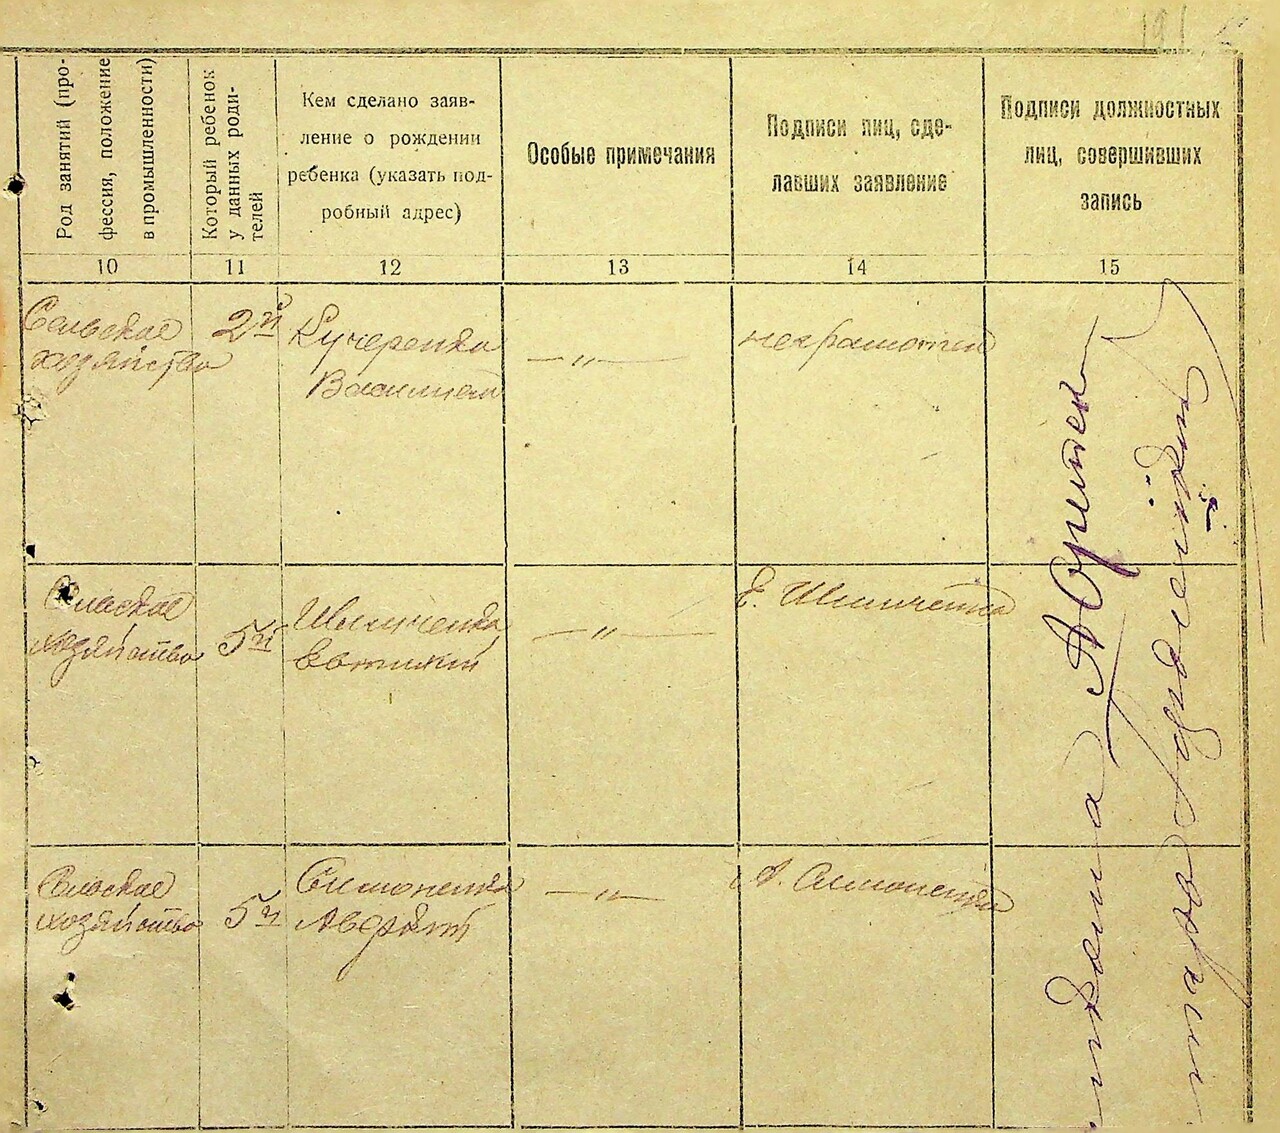 191
Род занятий (про-
фессия, положение
в промышленности)
Который ребенок
у данных роди-
телей
Кем сделано заяв-
ление о рождении
ребенка (указать под-
робный адрес)
Особые примечания
Подписи лиц, сде-
лавших заявление
Подписи должностных
лиц, совершивших
запись
10
11
12
13
14
15
Сельское
хозяйство
2й
Кучеренко
Василий
— " —
неграмотен
Сельское
хозяйство
5й
Евтихий
— " —
Е.
Сельское
хозяйство
5й
Симоненко
Аверкий
— " —
А. Симоненко